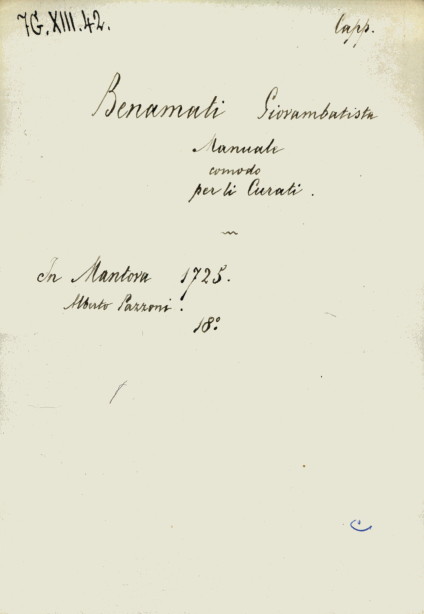 7G.XIII.42.
Capp.
Benamati Giovambatista
Manuale
comodo
per li Curati.
In Mantova 1725.
Alberto Pazzoni.
18º